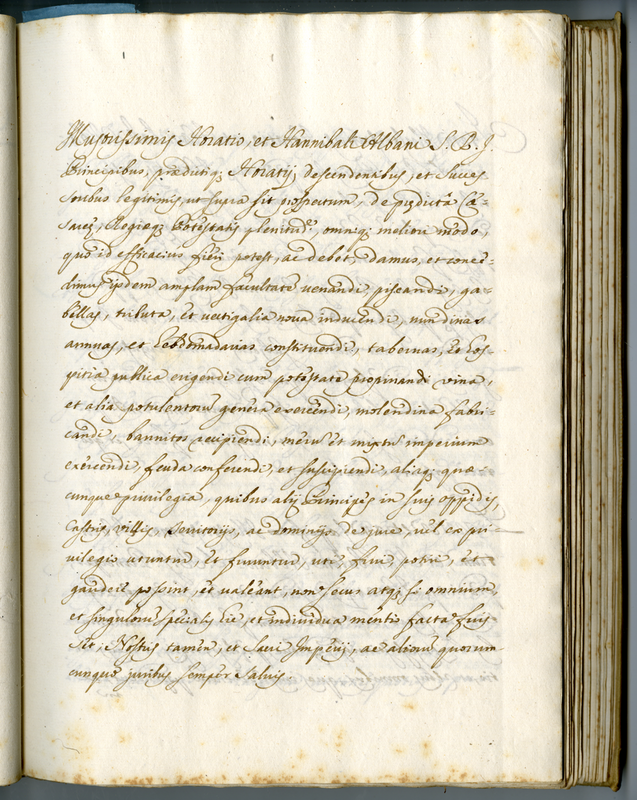 Illustrissimis Horatio, et Hannibali Albani S. R. I.
Principibus, prædictiq; Horatij descendentibus, et Succes
soribus legitimis, ut supra fit prospectum, de prædicta Cæ-
sareæ, Regiæq; Potestatis plenitud.e, omniq; meliori modo,
quo id efficacius fieri potest, ac debet, damus, et conce-
dimus ijsdem amplam facultatē venandi, piscandi, ga-
bellas, tributa, et vectigalia nova inducendi, nundinas
annuas, et hebdomadarias constituendi, tabernas, et hos-
pitia publica erigendi cum potestate propinandi vina,
et alia potulentorū genera exercendi, molendina fabri-
candi, bannitos accipiendi, merū et mixtū imperium
exercendi, feuda conferendi, et suscipiendi, aliaq; quæ-
cunque privilegia, quibus alij Principes in suis oppidis,
Castris, Villis, territorijs, ac dominijs de jure, vel ex pri-
vilegio utuntur, et fruuntur, uti, frui, potiri, et
gaudere possint, et valeant, non secus atq; si omnium,
et singulorū specialis hic, et individua mentio facta fuis-
set; Nostris tamen, et Sacri Imperij, ac aliorū quorum
cunque juribus semper salvis